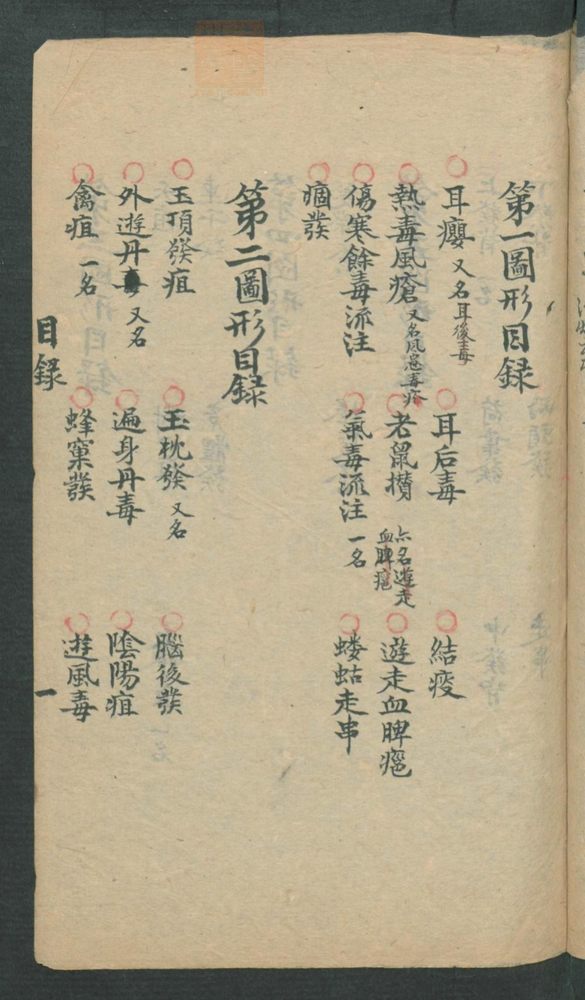 第一圖形目録
耳癭 又名耳後毒 耳后毒 結疫
熱毒風瘡 又名風惡毒瘡 老鼠攢 亦名遊走血脾癍 遊走血脾癍
傷寒餘毒流注 氣毒流注 一名 螻蛄走串
痼發
第二圖形目録
玉頂發疽 玉枕發 又名 腦後發
外遊丹毒 又名 遍身丹毒 陰陽疽
禽疽 一名 蜂窠發 遊風毒
目録 一